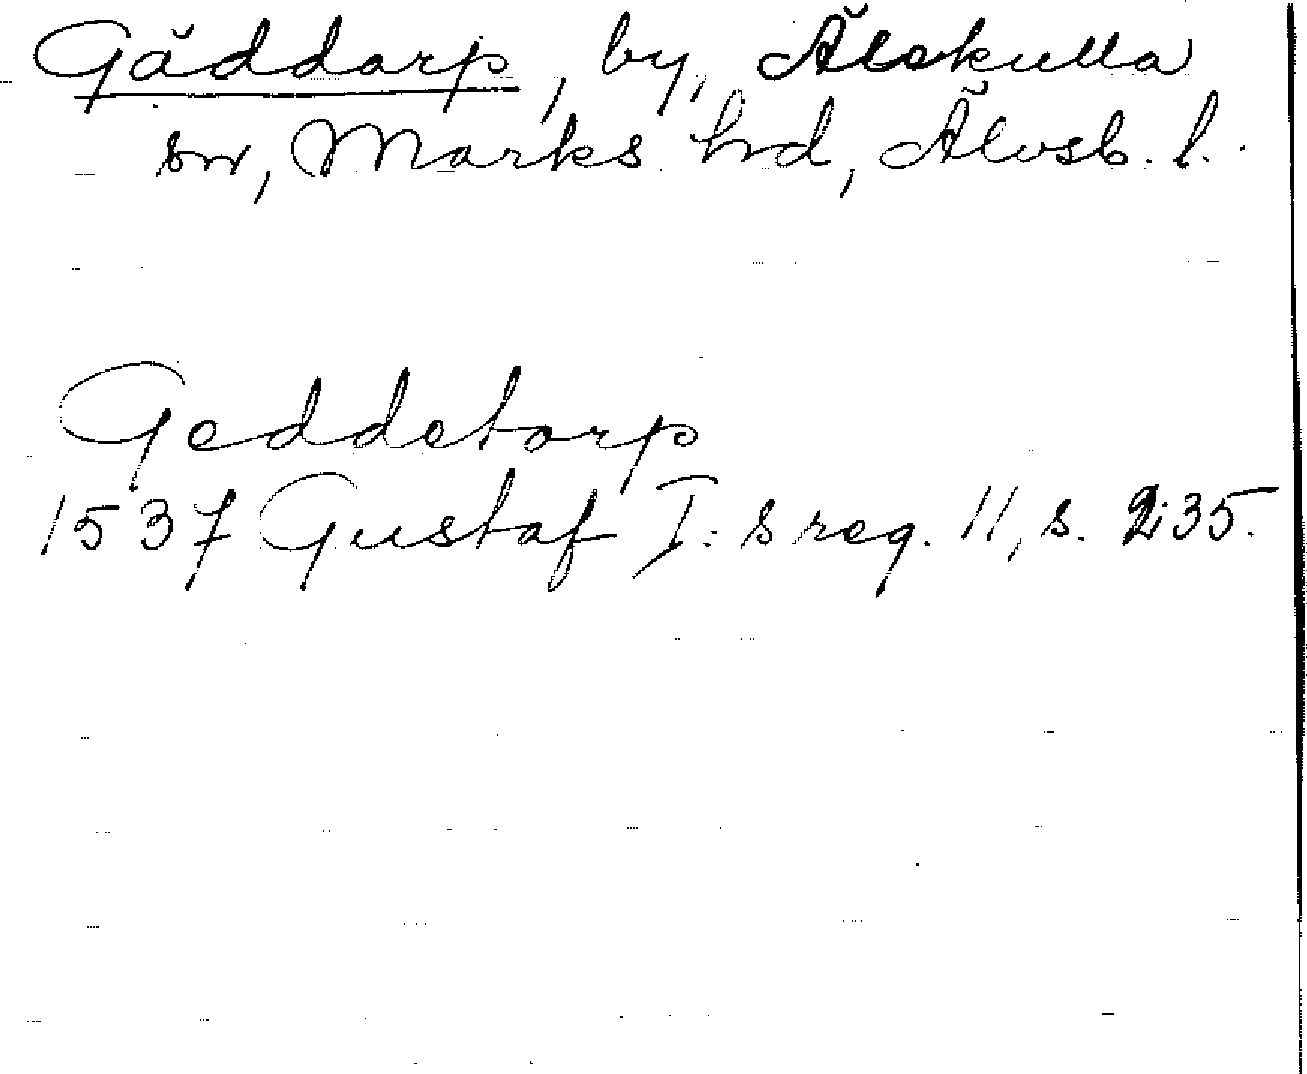 Gäddarp, by, Älekulla
sn, Marks hrd, Älvsb. l.
Geddetorp
1537 Gustaf I:s reg. 11, s. 235.